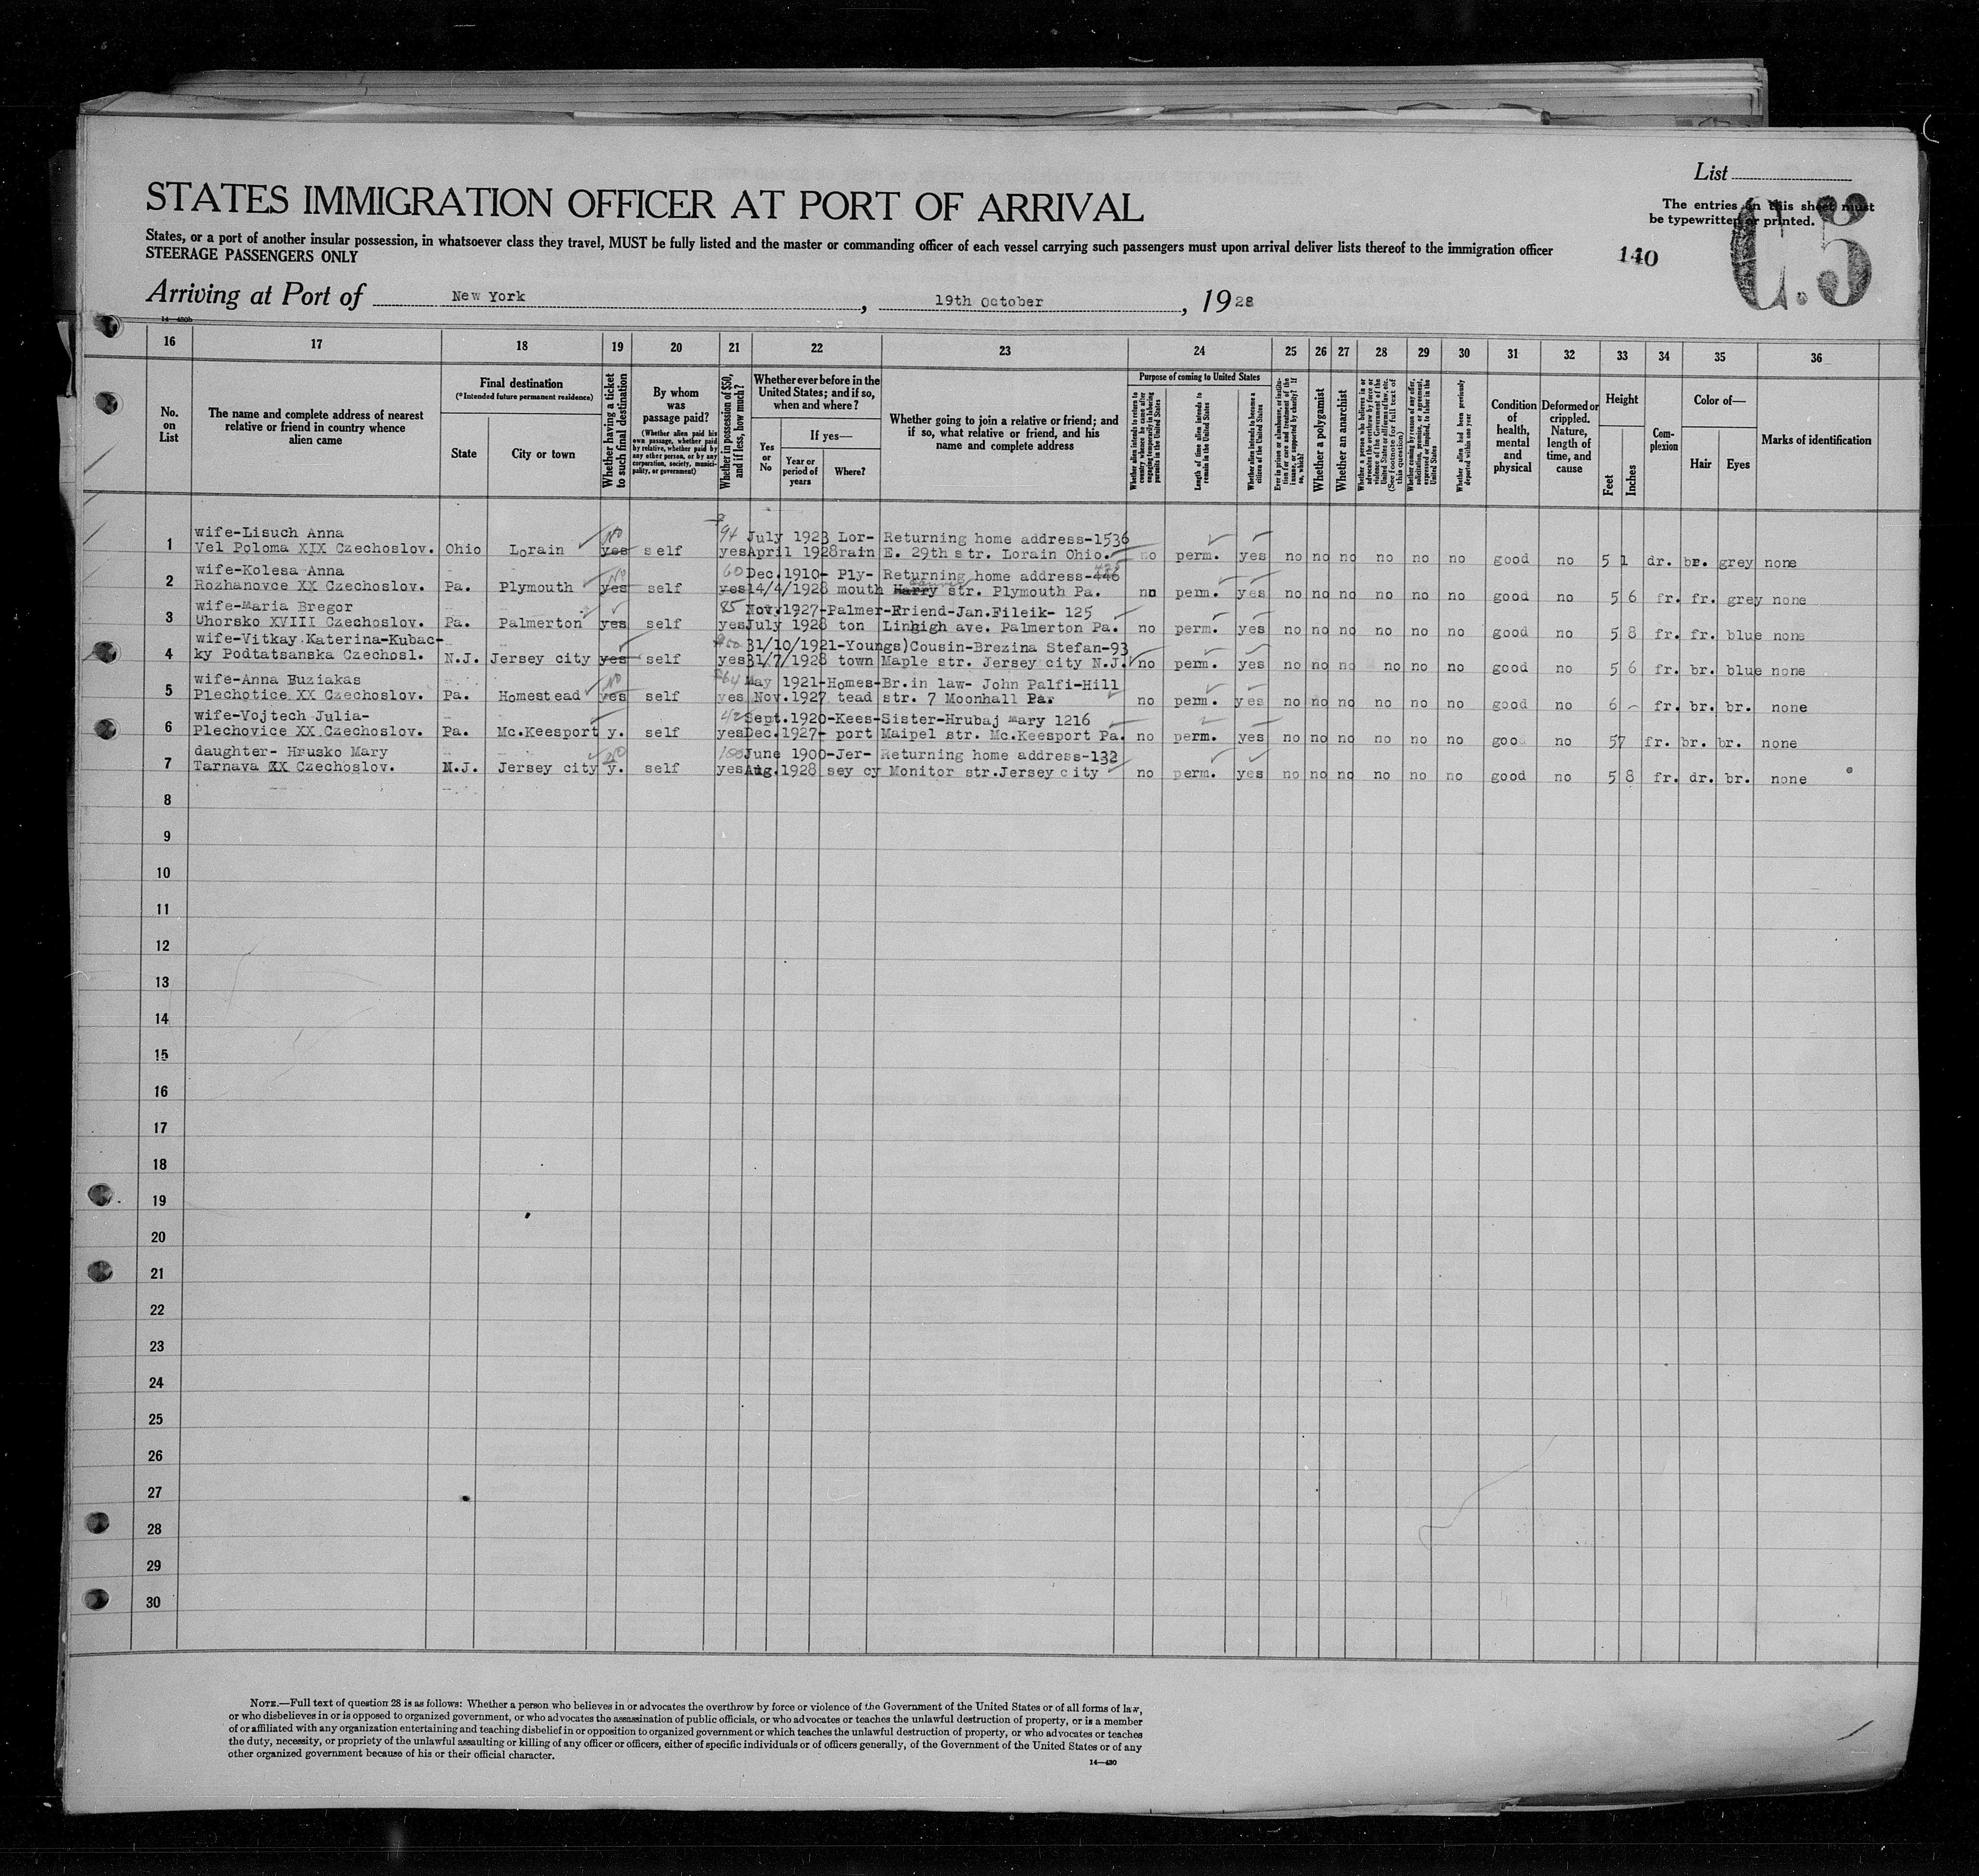 List
The entries on this sheet must
be typewritten or printed.
C.5
140
STATES IMMIGRATION OFFICER AT PORT OF ARRIVAL
States, or a port of another insular possession, in whatsoever class they travel, MUST be fully listed and the master or commanding officer of each vessel carrying such passengers must upon arrival deliver lists thereof to the immigration officer
STEERAGE PASSENGERS ONLY
Arriving at Port of New York, 19th October, 1928
14—430b
16 17 18 19 20 21 22 23 24 25 26 27 28 29 30 31 32 33 34 35 36
No. on List
The name and complete address of nearest relative or friend in country whence alien came
Final destination
(*Intended future permanent residence)
State
City or town
Whether having a ticket to such final destination
By whom was passage paid?
(Whether alien paid his own passage, whether paid by relative, whether paid by any other person, or by any corporation, society, municipality, or government)
Whether in possession of $50, and if less, how much?
Whether ever before in the United States; and if so, when and where?
Yes or No
If yes—
Year or period of years
Where?
Whether going to join a relative or friend; and if so, what relative or friend, and his name and complete address
Purpose of coming to United States
Whether alien intends to return to country whence he came after engaging temporarily in laboring pursuits in the United States
Length of time alien intends to remain in the United States
Whether alien intends to become a citizen of the United States
Ever in prison or almshouse, or institution for care and treatment of the insane, or supported by charity? If so, which?
Whether a polygamist
Whether an anarchist
Whether a person who believes in or advocates the overthrow by force or violence of the Government of the United States or all forms of law, etc. (See footnote for full text of this question)
Whether coming by reason of any offer, solicitation, promise, or agreement, expressed or implied, to labor in the United States
Whether alien had been previously deported within one year
Condition of health, mental and physical
Deformed or crippled. Nature, length of time, and cause
Height
Feet
Inches
Complexion
Color of—
Hair
Eyes
Marks of identification
wife-Lisuch Anna 94 July 1923 Lor- Returning home address-1536
1 Vel Poloma XIX Czechoslov. Ohio Lorain No yes self yes April 1928 rain E. 29th str. Lorain Ohio. no perm. yes no no no no no no good no 5 1 dr. br. grey none
wife-Kolesa Anna 60 Dec.1910- Ply- Returning home address-446
2 Rozhanovce XX Czechoslov. Pa. Plymouth No yes self yes 14/4/1928 mouth Harry str. Plymouth Pa. no perm. yes no no no no no no good no 5 6 fr. fr. grey none
wife-Maria Bregor 85 Nov.1927-Palmer-Friend-Jan.Fileik- 125
3 Uhorsko XVIII Czechoslov. Pa. Palmerton yes self yes July 1928 ton Linhigh ave. Palmerton Pa. no perm. yes no no no no no no good no 5 8 fr. fr. blue none
wife-Vitkay Katerina-Kubac- 31/10/1921-Youngs)Cousin-Brezina Stefan-93
4 ky Podtatsanska Czechosl. N.J. Jersey city yes self yes 31/7/1928 town Maple str. Jersey city N.J. no perm. yes no no no no no no good no 5 6 fr. br. blue none
wife-Anna Fuziakas 64 May 1921-Homes-Br.in law- John Palfi-Hill
5 Plechotice XX Czechoslov. Pa. Homestead No yes self yes Nov.1927 tead str. 7 Moonhall Pa. no perm. yes no no no no no no good no 6 - fr. br. br. none
wife-Vojtech Julia- 42 Sept.1920-Kees-Sister-Hrubaj Mary 1216
6 Plechovice XX Czechoslov. Pa. Mc.Keesport y. self yes Dec.1927- port Maipel str. Mc.Keesport Pa. no perm. yes no no no no no no good no 5 7 fr. br. br. none
daughter- Hrusko Mary 100 June 1900-Jer- Returning home address-132
7 Tarnava XX Czechoslov. N.J. Jersey city no y. self yes Aug.1928 sey cy Monitor str.Jersey city no perm. yes no no no no no no good no 5 8 fr. dr. br. none
8
9
10
11
12
13
14
15
16
17
18
19
20
21
22
23
24
25
26
27
28
29
30
NOTE.—Full text of question 28 is as follows: Whether a person who believes in or advocates the overthrow by force or violence of the Government of the United States or of all forms of law,
or who disbelieves in or is opposed to organized government, or who advocates the assassination of public officials, or who advocates or teaches the unlawful destruction of property, or is a member
of or affiliated with any organization entertaining and teaching disbelief in or opposition to organized government or which teaches the unlawful destruction of property, or who advocates or teaches
the duty, necessity, or propriety of the unlawful assaulting or killing of any officer or officers, either of specific individuals or of officers generally, of the Government of the United States or of any
other organized government because of his or their official character.
14—430